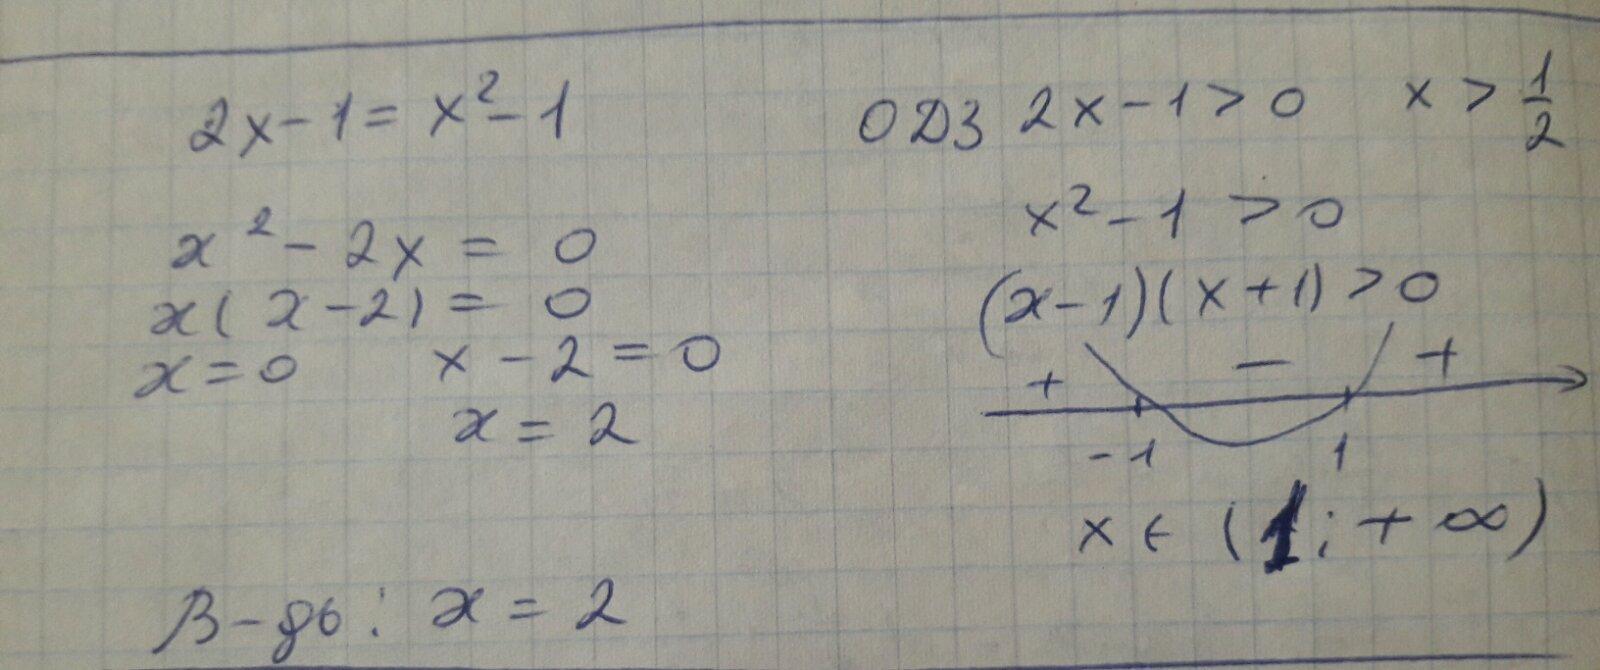 2x-1=x²-1
ОДЗ 2x-1>0 x>1/2
x²-1>0
x²-2x=0
(x-1)(x+1)>0
x(x-2)=0
x=0 x-2=0
+ - +
x=2
-1 1
x∈(1;+∞)
В-дь: x=2